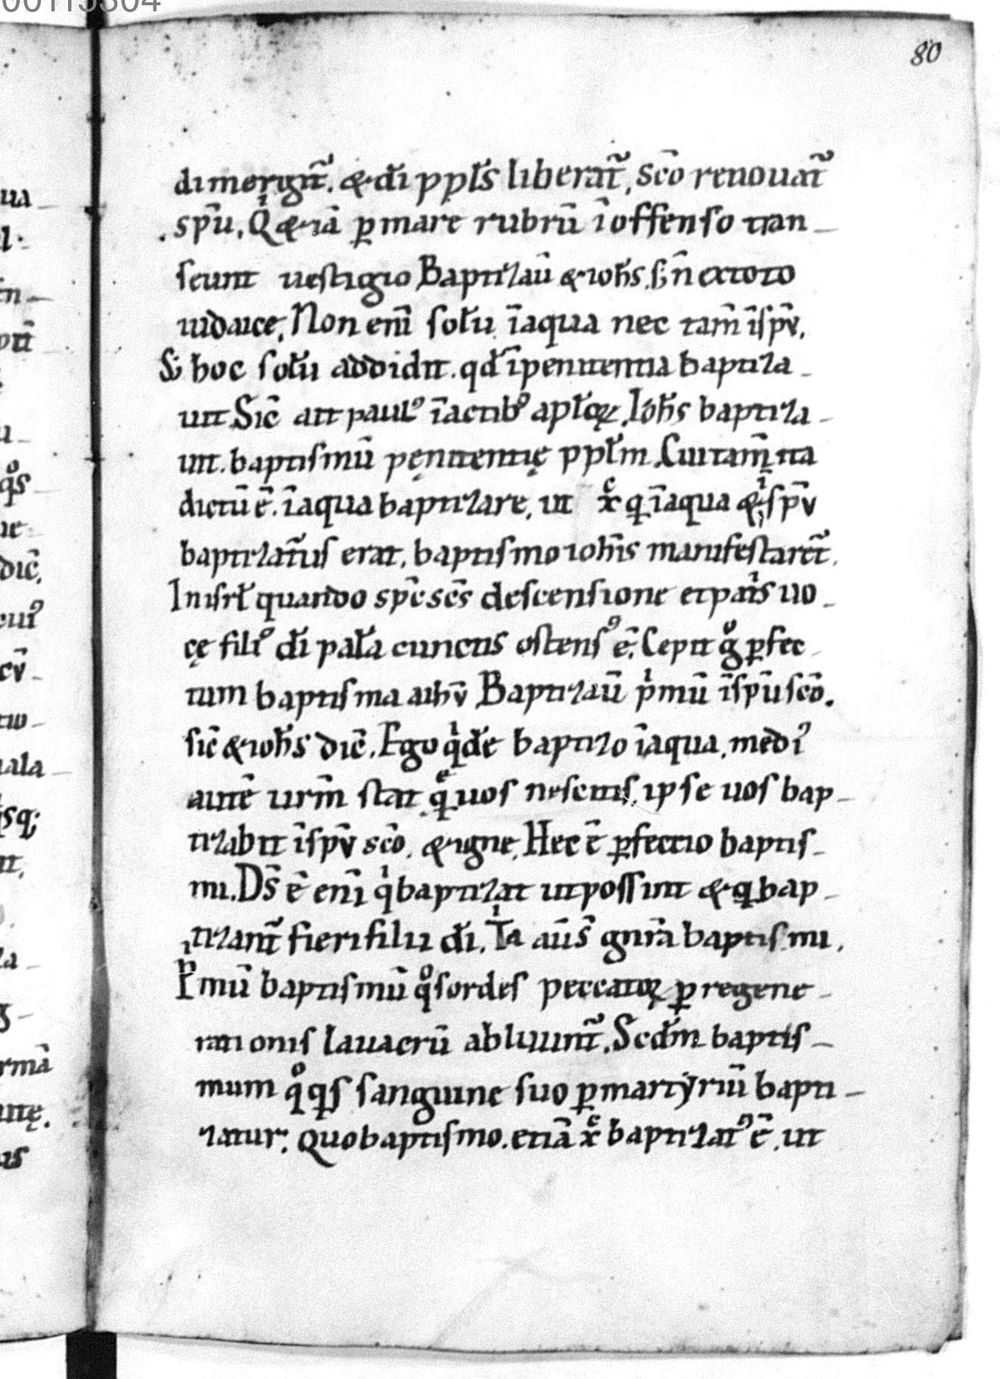 80
dimergit̄. & dī ppl̄s liberat̄, sc̄o renouat̄
sp̄u. Q & iā p mare rubrū ī offenso tran
seunt uestigio Baptizaū & ioh̄s. s; n̄ extoto
iudaice, Non enī solū īaqua nec tam̄ īsp̄v,
S; hoc solū addidit. qd̄ īpenitentia baptiza
uit Sic̄ ait paulꝰ īactibꝰ apl̄oꝝ, Ioh̄s baptiza
uit. baptismū pęnitentię ppl̄m. Cui tam̄ ita
dictū ē. īaqua baptizare, ut xͤ q īaqua & īsp̄v
baptizat̄us erat, baptismo ioh̄is manifestaret̄.
In isrl̄ quando sp̄c sc̄s descensione et pat͛s uo
cę filiꝰ dī palā cunctis ostensꝰ ē. Cepit gͦ pfec
tum baptisma a ih̄v Baptizaū pͥmū īsp̄u sc̄o.
sic̄ & ioh̄s dic̄. Ego qͥdē baptizo īaqua, mediꝰ
autē urm̄ stat qͤ uos nescitis, ipse uos bap
tizabit īsp̄v sc̄o, & igne. Hec ē pfectio baptis
mi. Ds̄ ē enī qͥ baptizat ut possint & q bap
tizant̄ fieri filii dī. Tͥa aūs̄ gn̄ra baptismi.
Pͥmū baptismū qͦ sordes peccatoꝝ p regene
rationis lauacrū abluunt̄. Scdm̄ baptis
mum qͦ qs sanguine suo p martyriū bapti
zatur. quo baptismo. etiā xͤ baptizatꝰ ē. ut